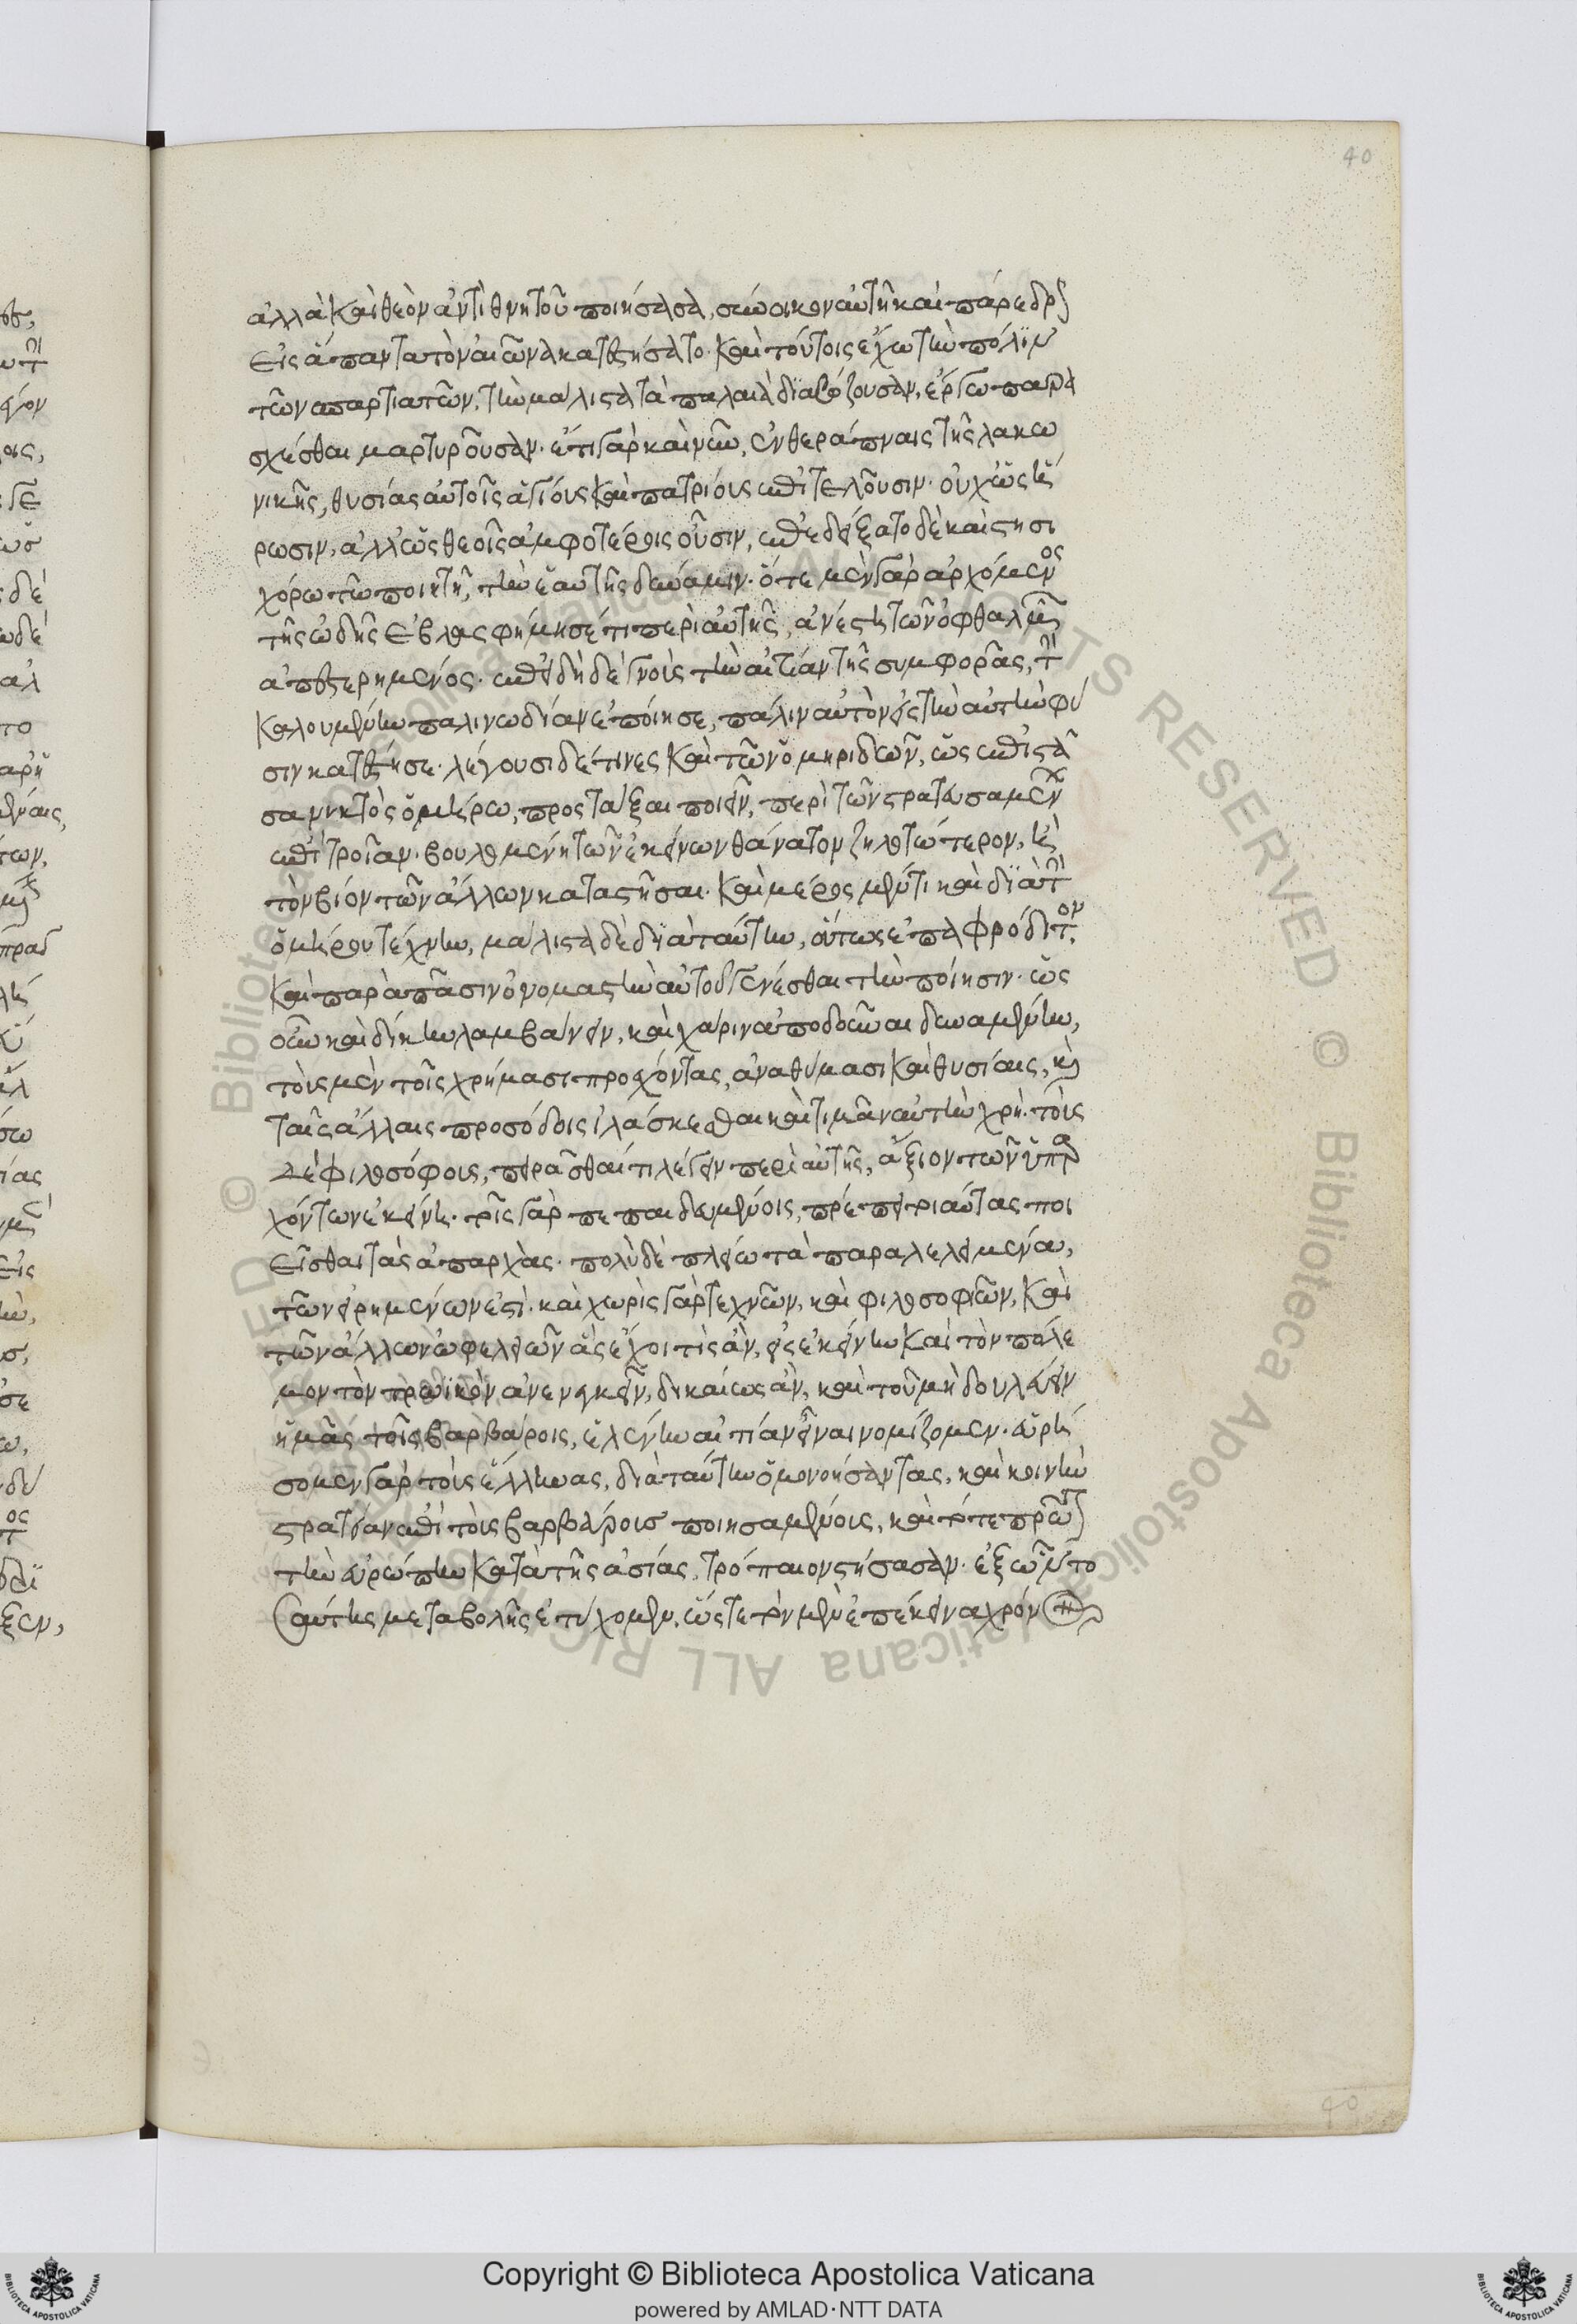 40
ἀλλὰ καὶ θεὸν ἀντὶ θνητοῦ ποιήσασα, σύνοικον αὐτῇ καὶ πάρεδρον
εἰς ἅπαντα τὸν αἰῶνα κατεστήσατο. καὶ τούτοις ἔχω τὴν πόλιν
τῶν σπαρτιατῶν, τὴν μάλιστα τὰ παλαιὰ διασώζουσαν, ἔργω παρα
σχέσθαι μαρτυροῦσαν. ἔτι γὰρ καὶ νῦν, ἐν θεράπναις τῆς λακω
νικῆς, θυσίας αὐτοῖς ἁγίους καὶ πατρίους ἐπιτελοῦσιν. οὐχ ὡς ἥ
ρωσιν, ἀλλ' ὡς θεοῖς ἀμφοτέροις οὖσιν, ἐπεδείξατο δὲ καὶ στησι
χόρω τῶ ποιητῇ, τὴν ἑαυτῆς δύναμιν. ὅτε μὲν γὰρ ἀρχόμενος
τῆς ὠδῆς ἐβλασφήμησέ τι περὶ αὐτῆς, ἀνέστη τῶν ὀφθαλμῶν
ἀπεστερημένος. ἐπειδὴ δὲ γνοὺς τὴν αἰτίαν τῆς συμφορᾶς, τὴν
καλουμένην παλινωδίαν ἐποίησε, πάλιν αὐτὸν εἰς τὴν αὐτὴν φύ
σιν κατέστησε. λέγουσι δέ τινες καὶ τῶν ὁμηριδῶν, ὡς ἐπιστᾶ
σα νυκτὸς ὁμήρω, προστάξαι ποιεῖν, περὶ τῶν στρατευσαμένων
ἐπὶ τροίαν. βουλομένη τῶν ἐκείνων θάνατον ζηλωτώτερον, ἢ
τὸν βίον τῶν ἄλλων καταστῆσαι. καὶ μέρος μέν τι καὶ διὰ τὴν
ὁμήρου τέχνην, μάλιστα δὲ διὰ ταύτην, οὕτως ἐπαφρόδιτον,
καὶ παρὰ πᾶσιν ὀνομαστὴν αὐτοῦ γενέσθαι τὴν ποίησιν. ὡς
οὖν καὶ δίκην λαμβάνειν, καὶ χάριν ἀποδοῦναι δυναμένην,
τοὺς μὲν τοῖς χρήμασι προέχοντας, ἀναθήμασι καὶ θυσίαις, καὶ
ταῖς ἄλλαις προσόδοις ἱλάσκεσθαι καὶ τιμᾶν αὐτὴν χρή. τοὺς
δὲ φιλοσόφους, πειρᾶσθαί τι λέγειν περὶ αὐτῆς, ἄξιον τῶν ὑπαρ
χόντων ἐκείνη. τοῖς γὰρ πεπαιδευμένοις, πρέπει τοιαύτας ποι
εῖσθαι τὰς ἀπαρχάς. πολὺ δὲ πλείω τὰ παραλελειμένα,
τῶν εἰρημένων ἐστί. καὶ χωρὶς γὰρ τεχνῶν, καὶ φιλοσοφιῶν, καὶ
τῶν ἄλλων ὠφελειῶν ἃς ἔχοι τὶς ἂν, εἰς ἐκείνην καὶ τὸν πόλε
μον τὸν τρωϊκὸν ἀνενεγκεῖν, δικαίως ἂν, καὶ τοῦ μὴ δουλεύειν
ἡμᾶς τοῖς βαρβάροις, ἑλένην αἰτίαν εἶναι νομίζομεν. εὑρή
σομεν γὰρ τοὺς ἕλληνας, διὰ ταύτην ὁμονοήσαντας, καὶ κοινὴν
στρατείαν ἐπὶ τοὺς βαρβάρους ποιησαμένους, καὶ τότε πρῶτον
τὴν εὐρώπην κατὰ τῆς ἀσίας, τρόπαιον στήσασαν. ἐξ ὧν το
σαύτης μεταβολῆς ἐτύχομεν, ὥστε τὸν μὲν ἐπέκεινα χρόνον
40
Copyright © Biblioteca Apostolica Vaticana
powered by AMLAD·NTT DATA